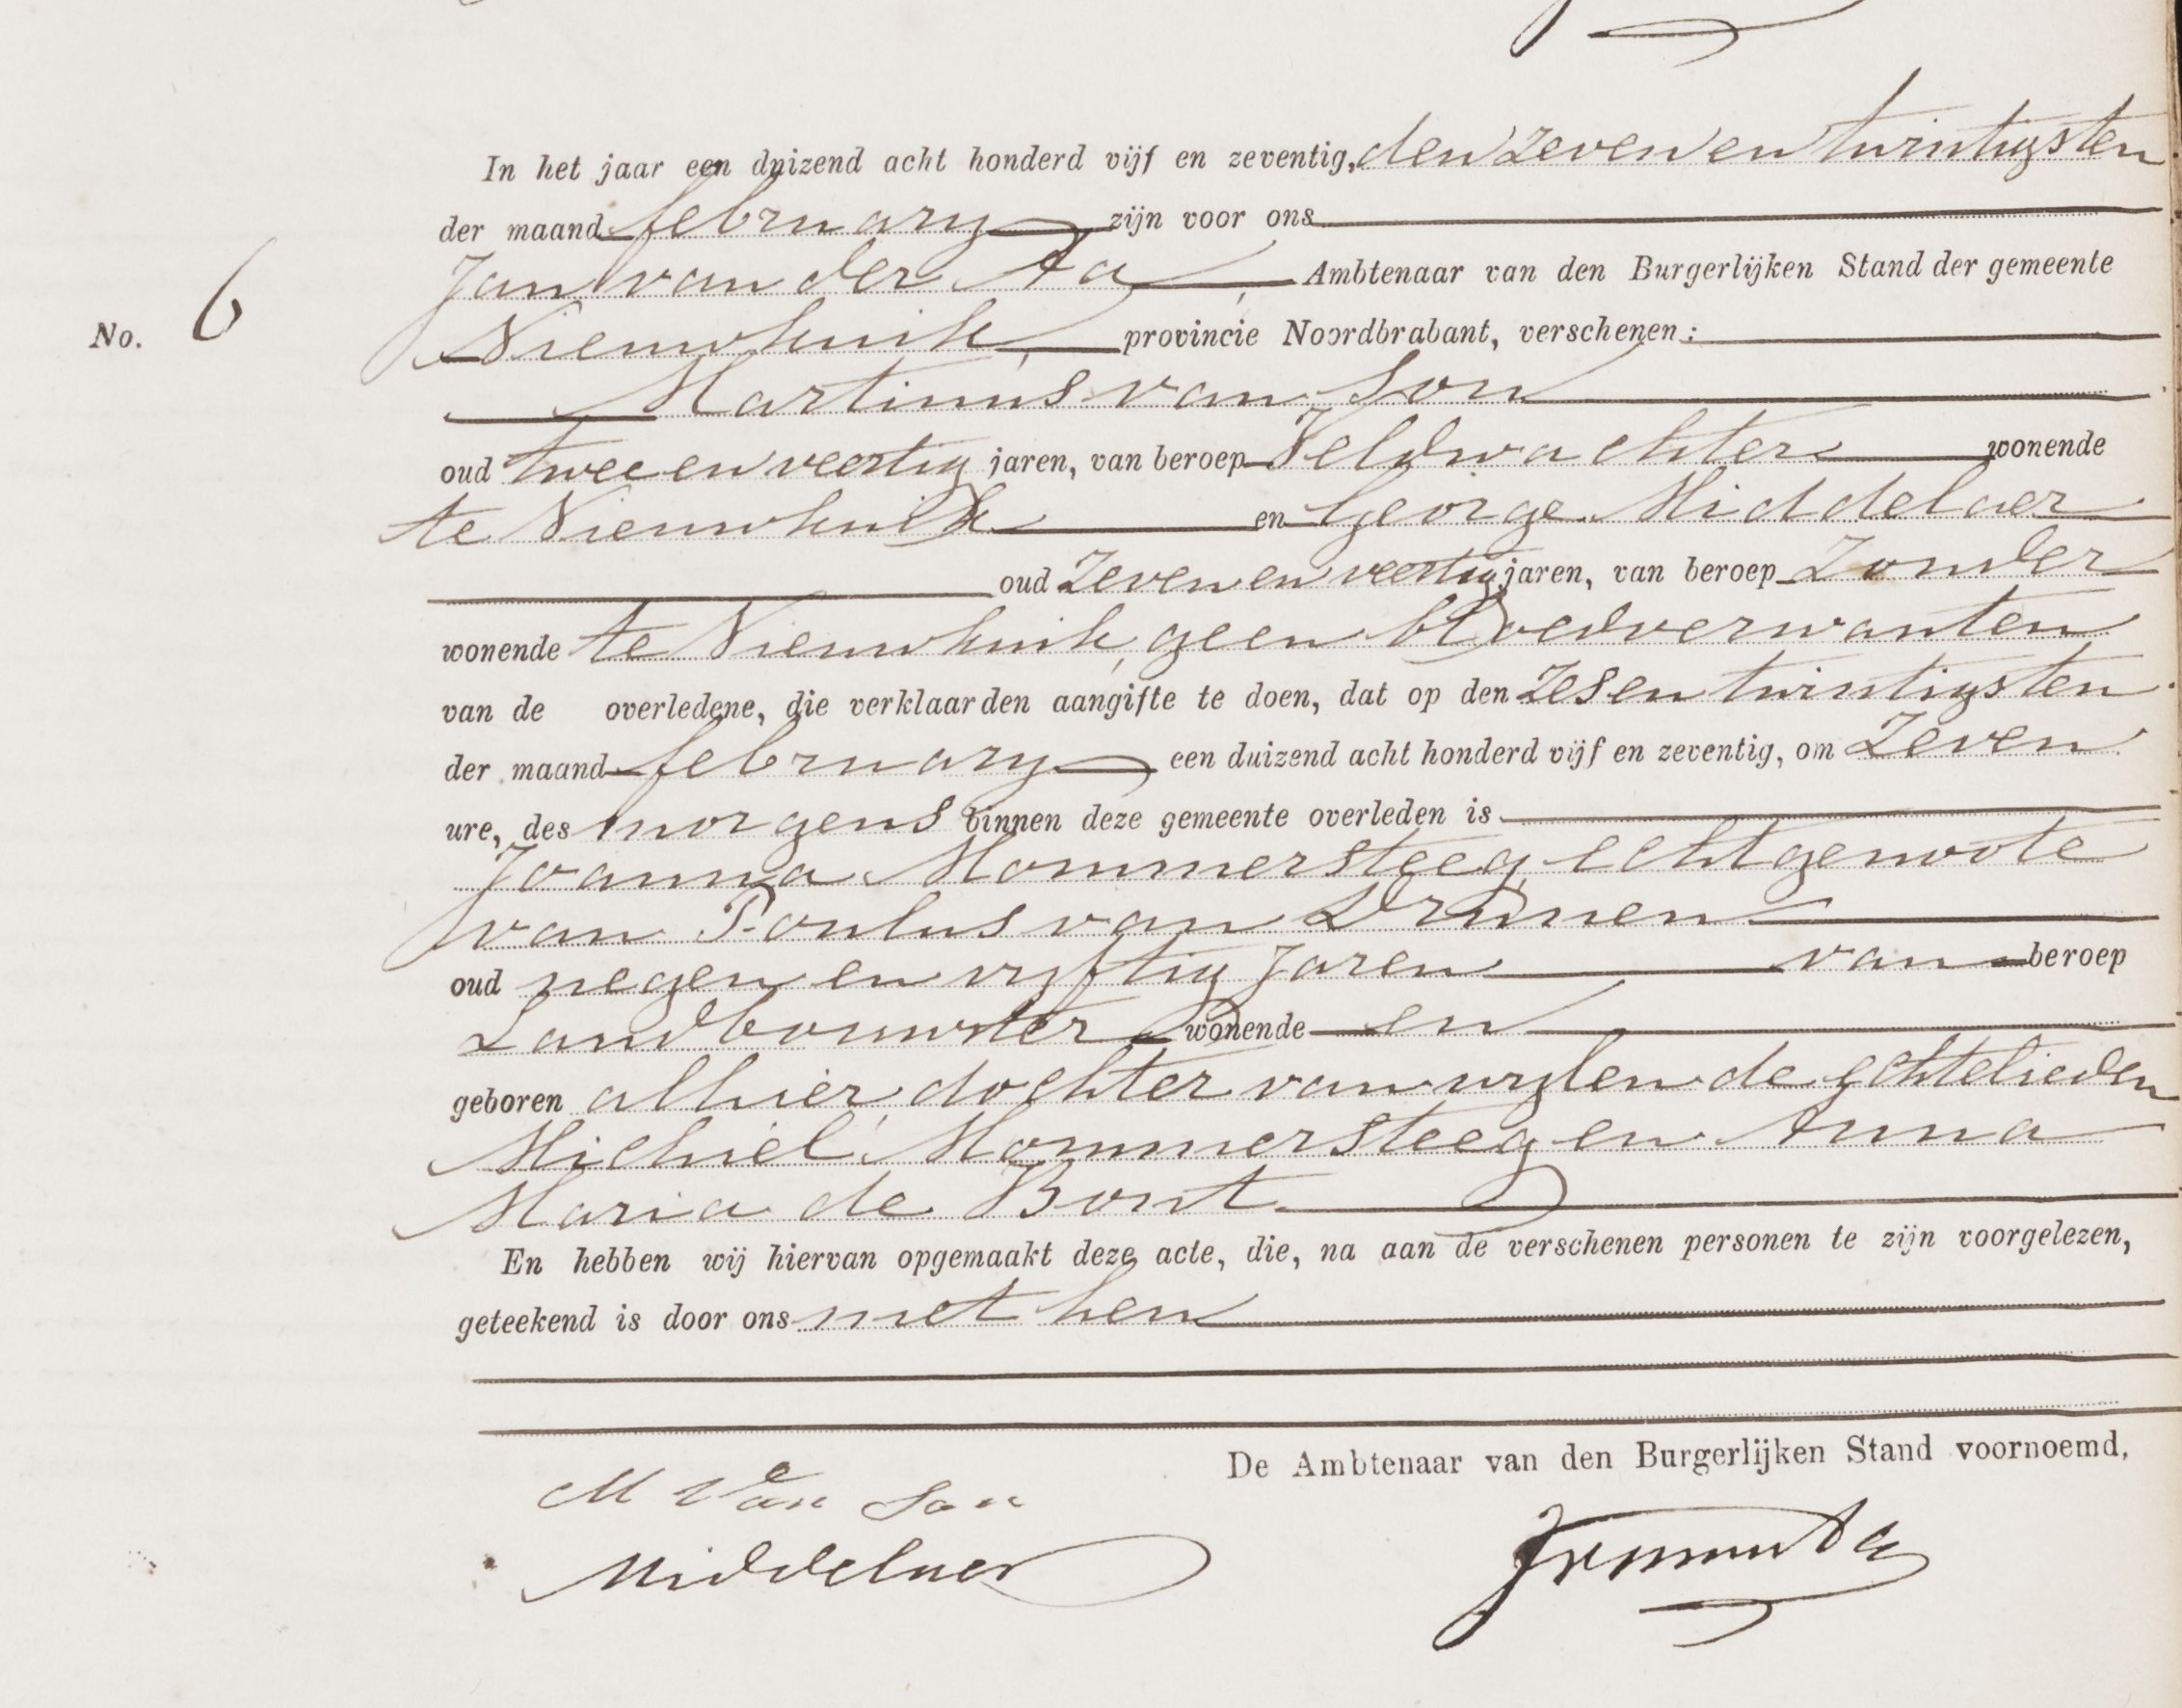 In het jaar een duizend acht honderd vijf en zeventig, den zeven en twintigsten
der maand february zijn voor ons
Jan van der Aa, Ambtenaar van den Burgerlijken Stand der gemeente
No. 6
Nieuwkuik, provincie Noordbrabant, verschenen:
Martinus van Son
oud twee en veertig jaren, van beroep Veldwachter wonende
te Nieuwkuik en George Middelaer
oud zeven en veertig jaren, van beroep zonder
wonende te Nieuwkuik, geen bloedverwanten
van de overledene, die verklaarden aangifte te doen, dat op den zes en twintigsten
der maand february een duizend acht honderd vijf en zeventig, om zeven
ure, des morgens binnen deze gemeente overleden is
Joanna Mommersteeg, echtgenoote
van Paulus van Drunen
oud negen en vyftig jaren van beroep
Landbouwster wonende en
geboren alhier, dochter van wylen de echtelieden
Michiel Mommersteeg en Anna
Maria de Bont
En hebben wij hiervan opgemaakt deze acte, die, na aan de verschenen personen te zijn voorgelezen,
geteekend is door ons met hen
De Ambtenaar van den Burgerlijken Stand voornoemd,
M van Son
Middelaer